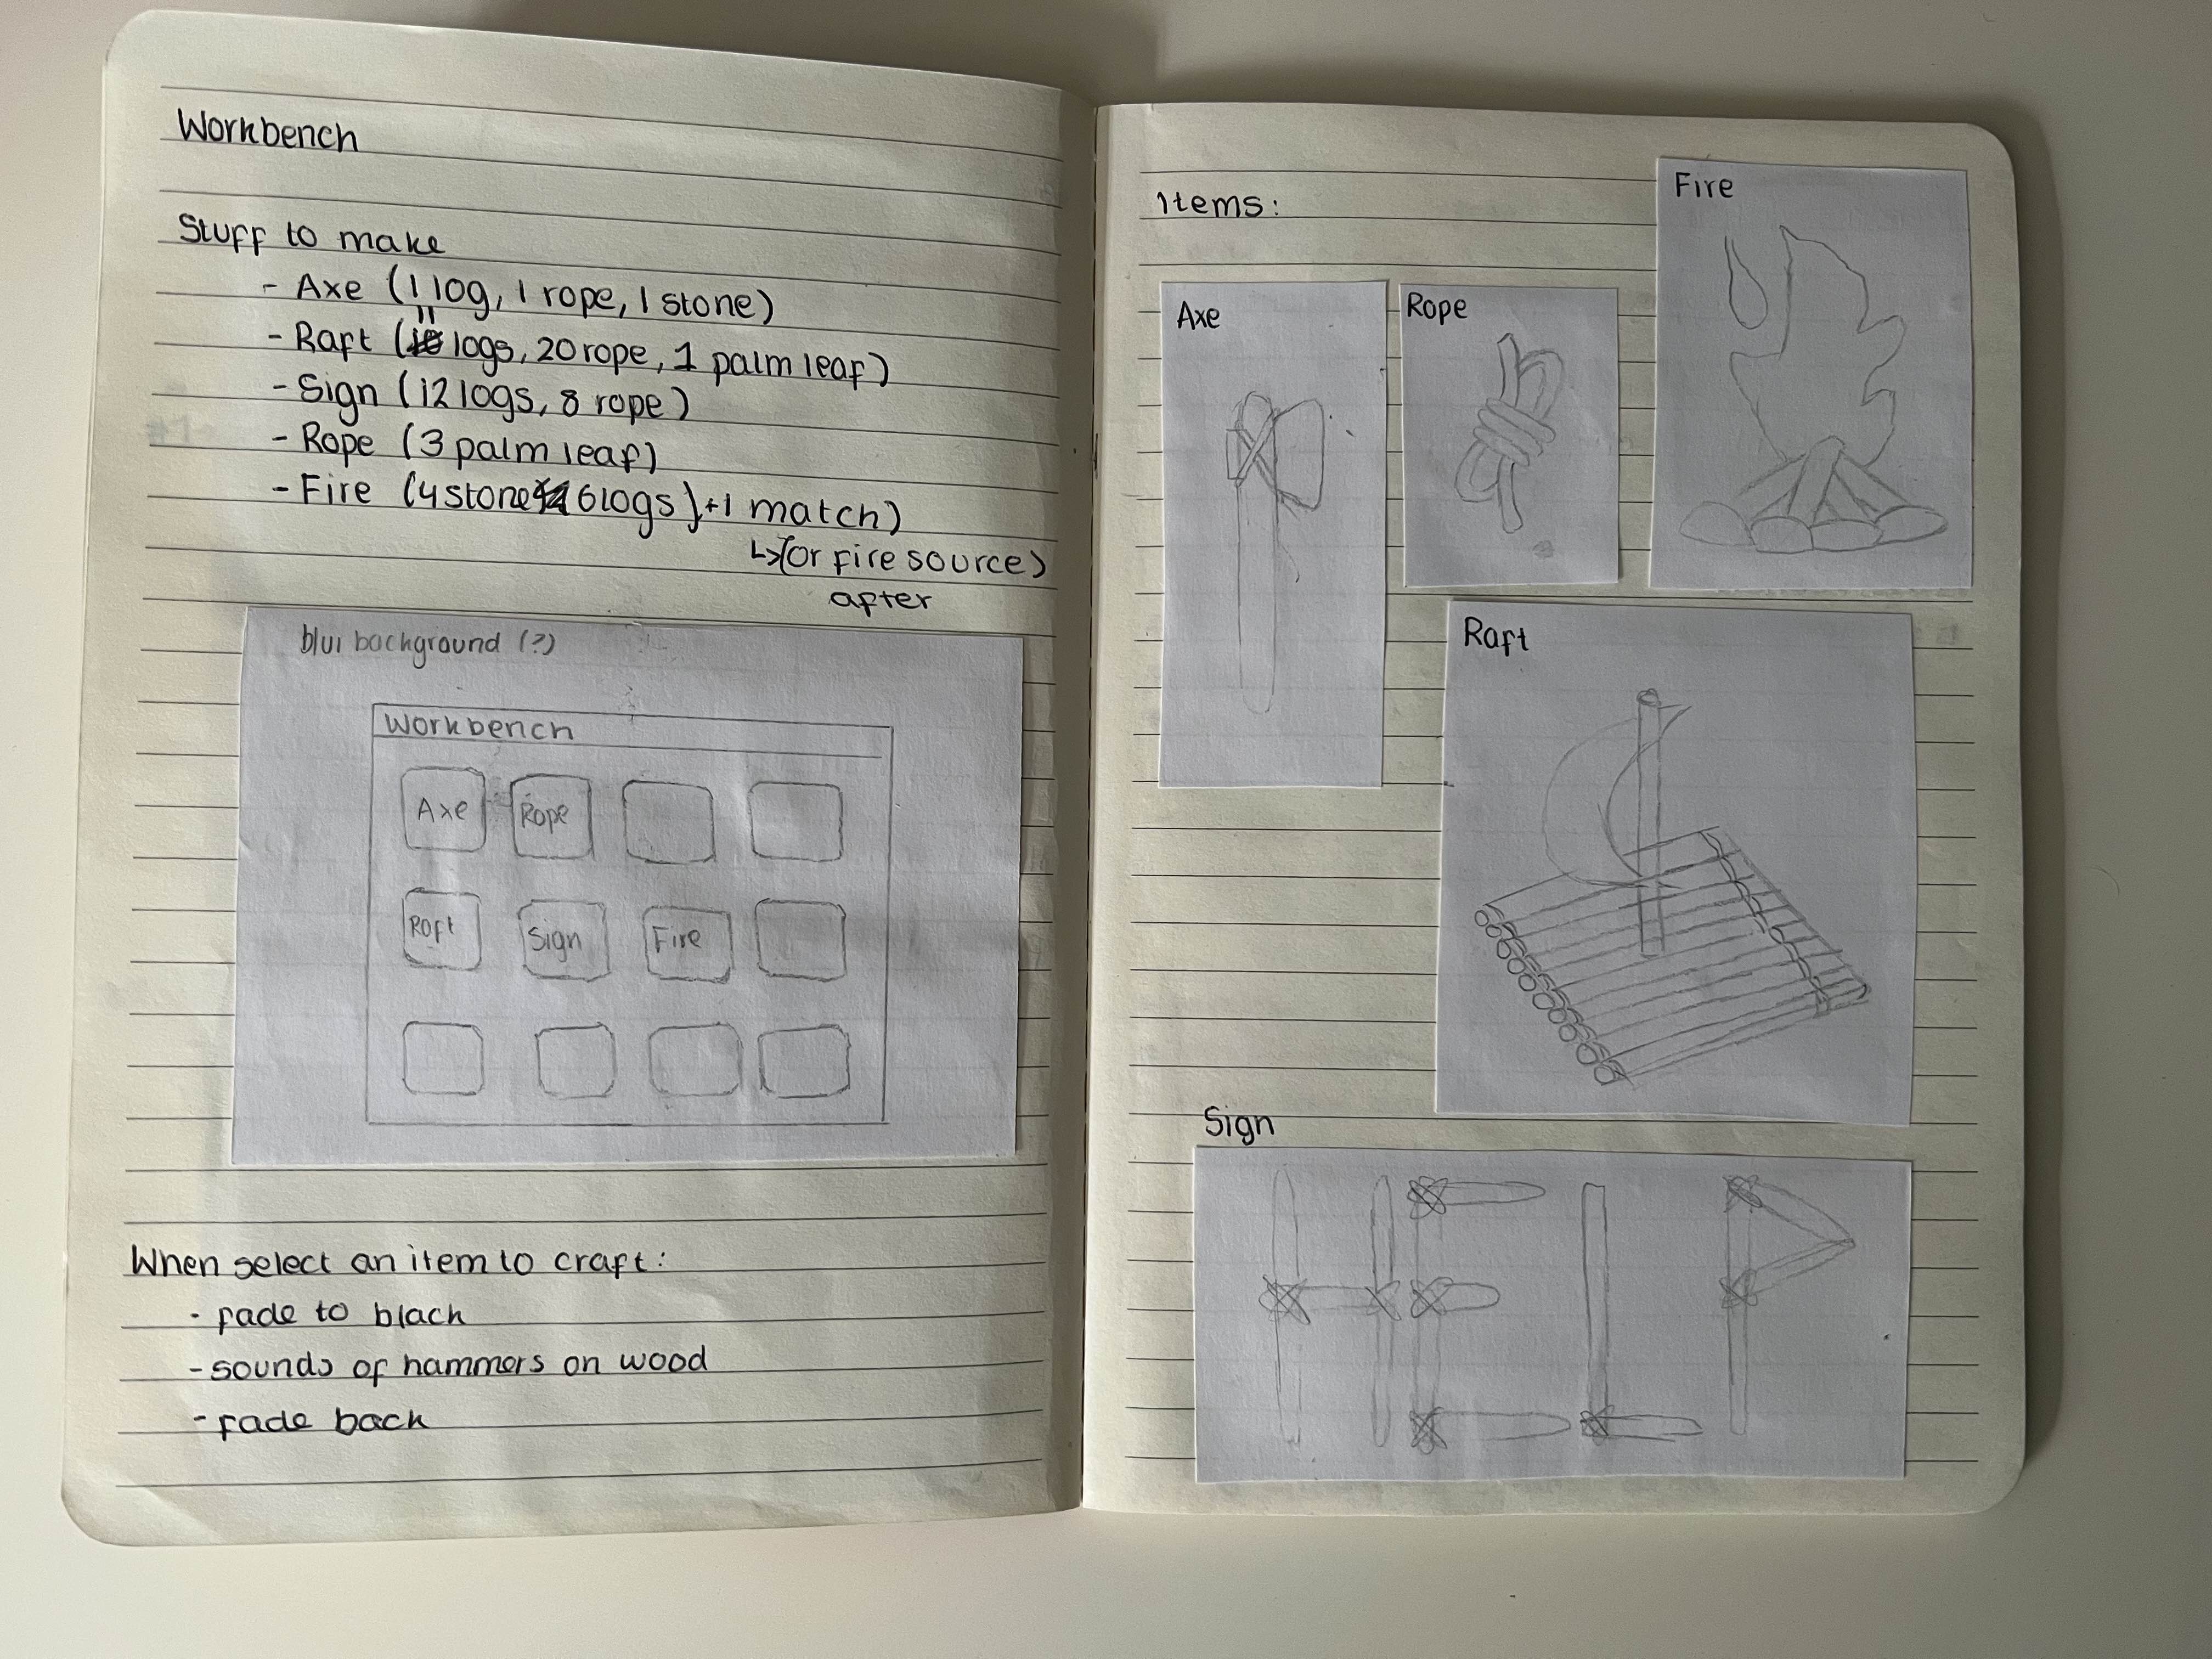 Workbench
Stuff to make
- Axe (1 log, 1 rope, 1 stone)
- Raft (11 logs, 20 rope, 1 palm leaf)
- Sign (12 logs, 8 rope)
- Rope (3 palm leaf)
- Fire (4 stone 6 logs) +1 match)
↳ (or fire source)
after
blur background (?)
Workbench
Axe
Rope
Raft
Sign
Fire
When select an item to craft:
- fade to black
- sounds of hammers on wood
- fade back
Items:
Fire
Axe
Rope
Raft
Sign
HELP